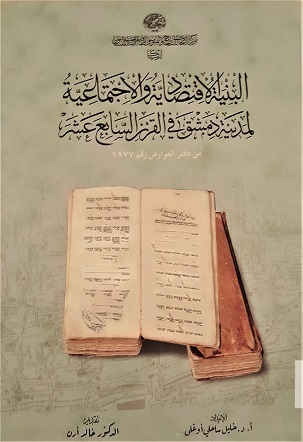 إرسيكا
البنية الاقتصادية والاجتماعية
لمدينة دمشق في القرن السابع عشر
من دفتر العوارض رقم ١٩٧٧
الإعداد
أ. د. خليل ساحلي أوغلى
تقديم
الدكتور خالد أرن